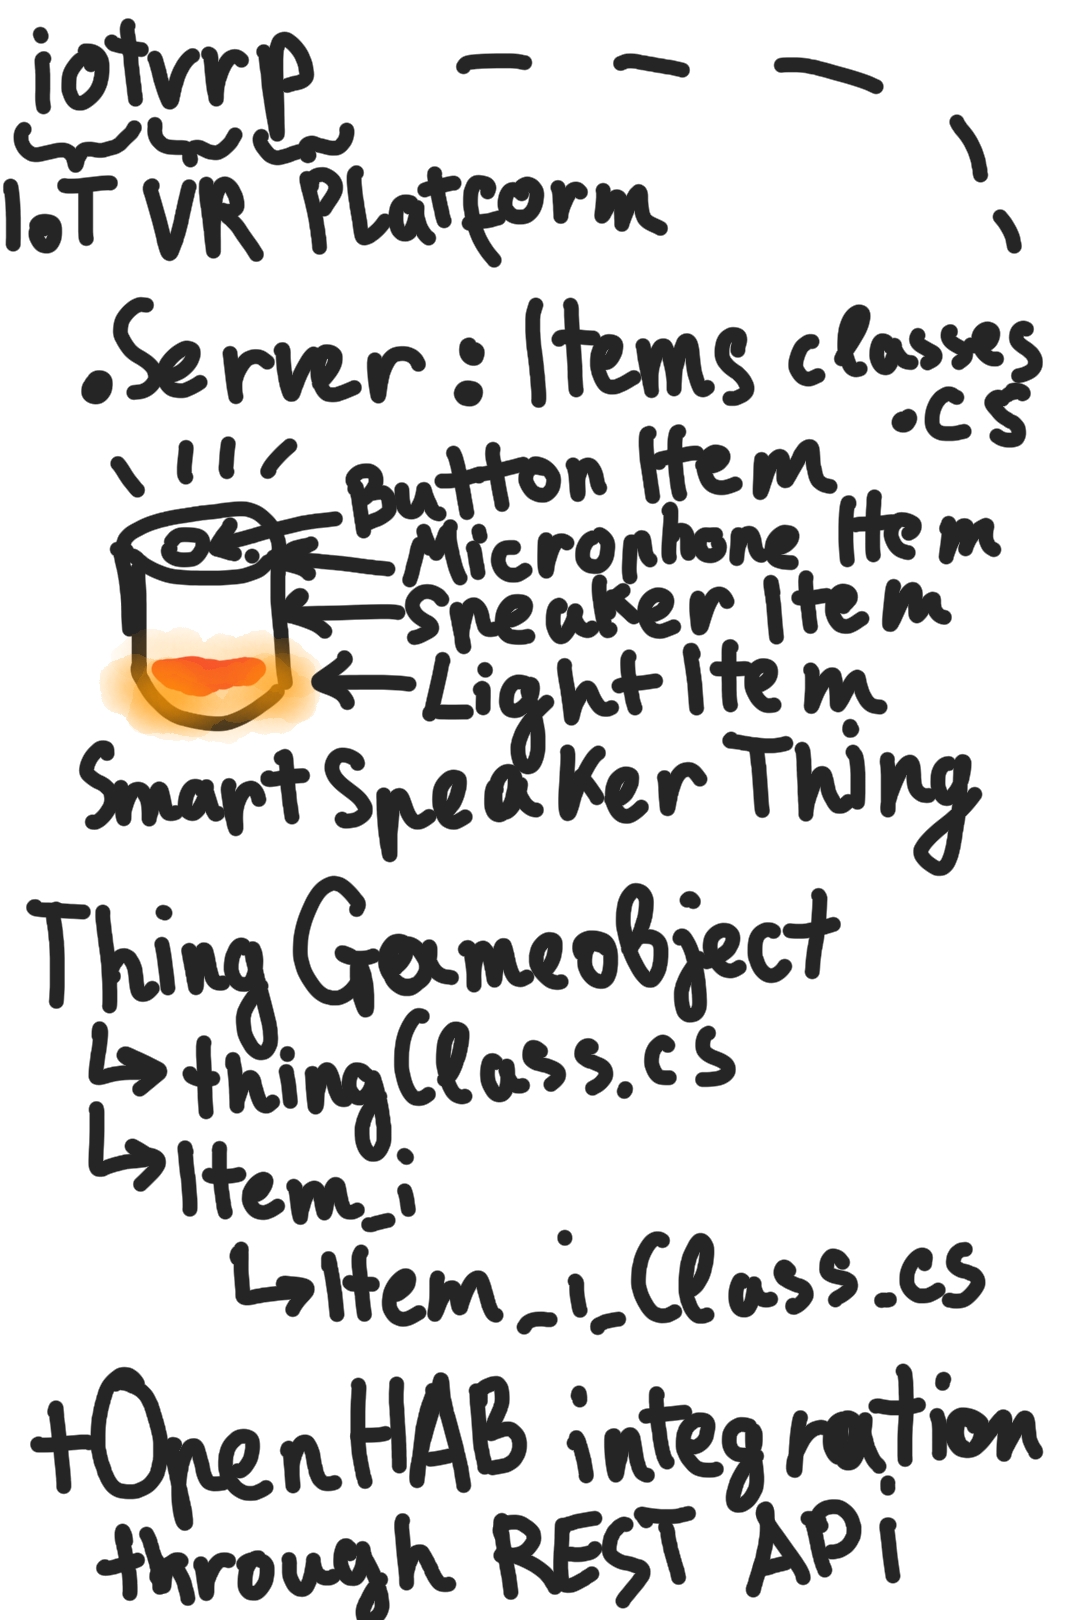 iotvrp
IoT VR Platform
.Server: Items classes
.cs
Button Item
Microphone Item
Speaker Item
Light Item
Smart Speaker Thing
Thing Gameobject
thingClass.cs
Item_i
Item_i_Class.cs
+OpenHAB integration
through REST APi